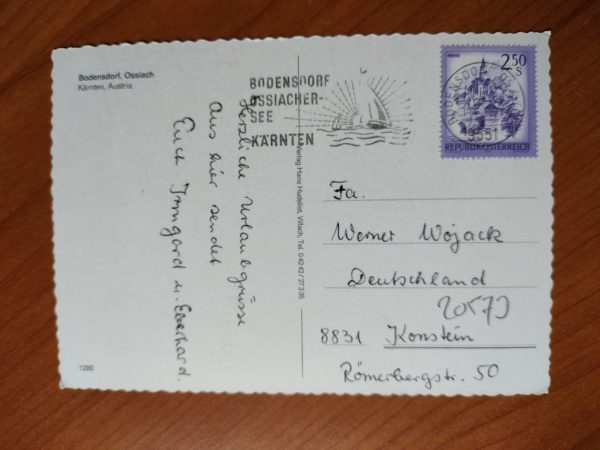 Bodensdorf, Ossiach
Kärnten, Austria
BODENSDORF
OSSIACHER-
SEE
KÄRNTEN
2.50
S
9551
REPUBLIK ÖSTERREICH
Herzliche Urlaubsgrüsse
aus hier sendet
Euch Irmgard u. Eberhard.
Verlag Hans Hudelist, Villach, Tel. 04242/27335
Fa.
Werner Wojack
Deutschland
8831 Konstein
Römerbergstr. 50
1280